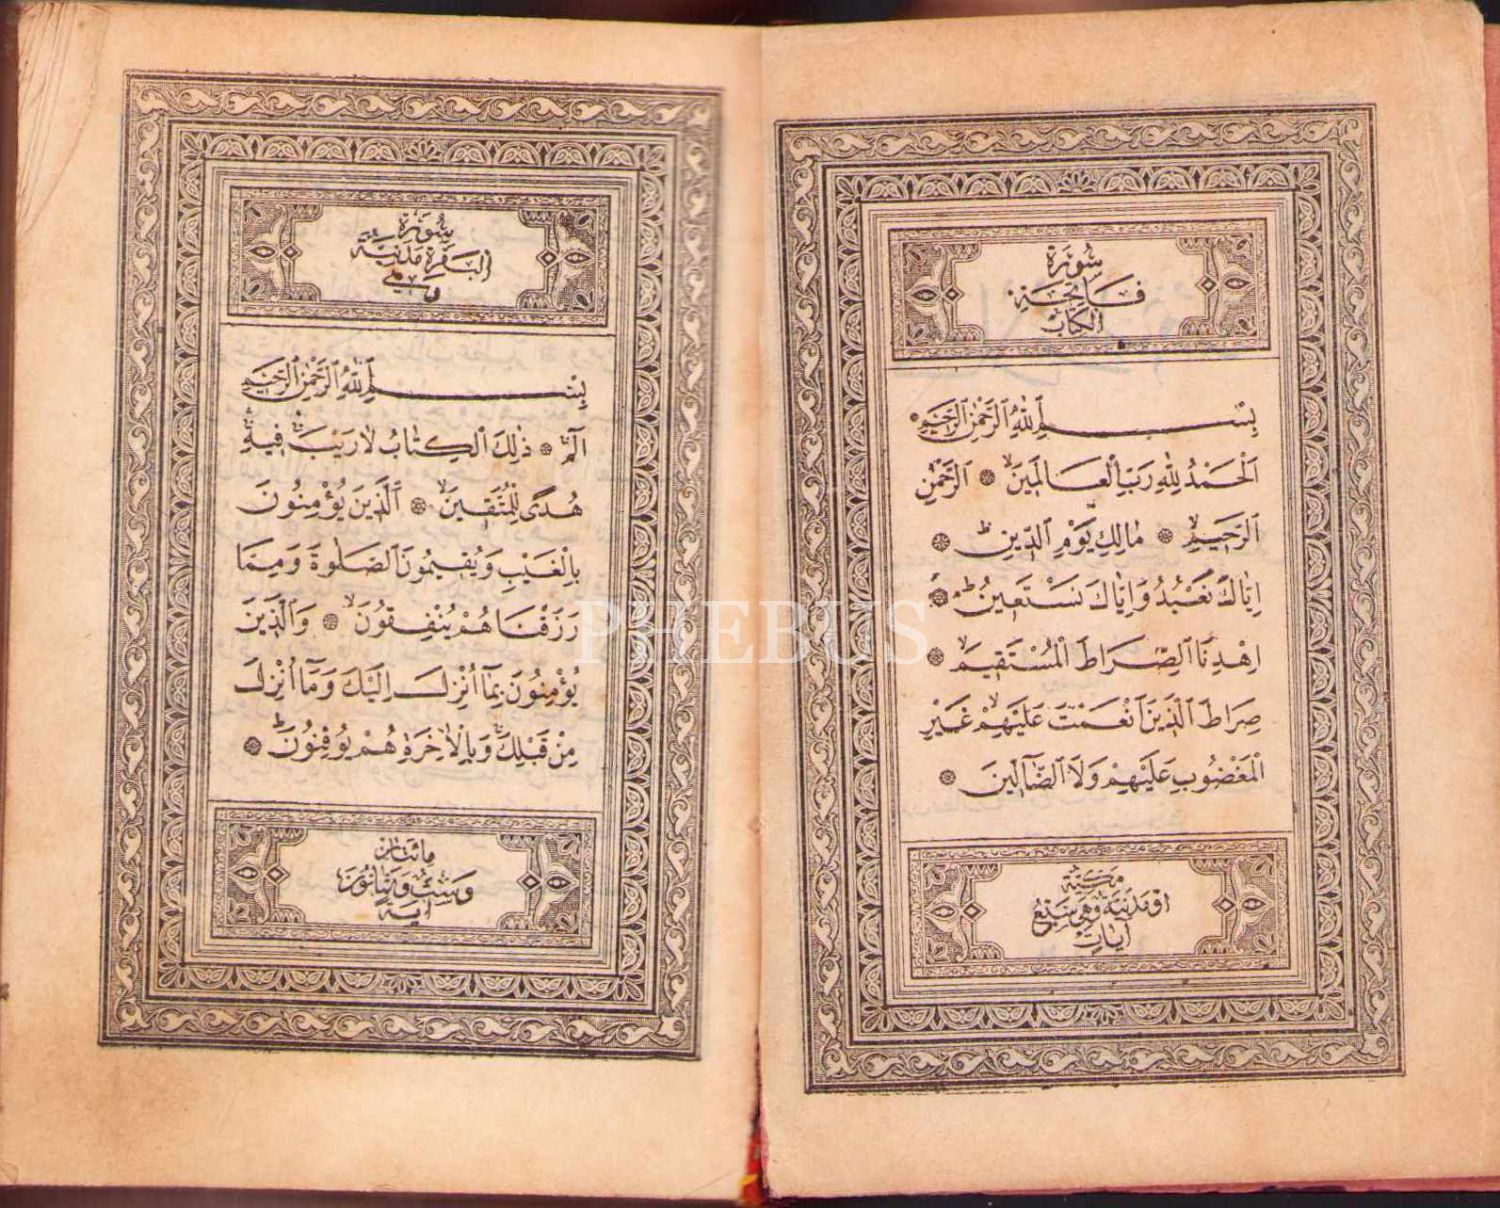 سُورَةُ
فَاتِحَةِ
الْكِتَابِ
بِسْمِ اللّٰهِ الرَّحْمٰنِ الرَّحِيمِ
اَلْحَمْدُ لِلّٰهِ رَبِّ الْعَالَمِينَۙ ۞ اَلرَّحْمٰنِ
الرَّحِيمِۙ ۞ مَالِكِ يَوْمِ الدِّينِۜ ۞
اِيَّاكَ نَعْبُدُ وَاِيَّاكَ نَسْتَعِينُۜ ۞
اِهْدِنَا الصِّرَاطَ الْمُسْتَقِيمَۙ ۞
صِرَاطَ الَّذِينَ اَنْعَمْتَ عَلَيْهِمْۙ غَيْرِ
الْمَغْضُوبِ عَلَيْهِمْ وَلَا الضَّٓالِّينَ ۞
مَكِّيَّةٌ
اَوْ مَدَنِيَّةٌ وَهِيَ سَبْعُ
اٰيَاتٍ
سُورَةُ
الْبَقَرَةِ مَدَنِيَّةٌ
وَهِيَ
بِسْمِ اللّٰهِ الرَّحْمٰنِ الرَّحِيمِ
الٓمٓۚ ۞ ذٰلِكَ الْكِتَابُ لَا رَيْبَۚۛ فِيهِۚۛ
هُدًى لِلْمُتَّقِينَۙ ۞ اَلَّذِينَ يُؤْمِنُونَ
بِالْغَيْبِ وَيُقِيمُونَ الصَّلٰوةَ وَمِمَّا
رَزَقْنَاهُمْ يُنْفِقُونَۙ ۞ وَالَّذِينَ
يُؤْمِنُونَ بِمَٓا اُنْزِلَ اِلَيْكَ وَمَٓا اُنْزِلَ
مِنْ قَبْلِكَۚ وَبِالْاٰخِرَةِ هُمْ يُوقِنُونَۜ ۞
مِائَتَانِ
وَسِتٌّ وَثَمَانُونَ
اٰيَةً
PHEBUS